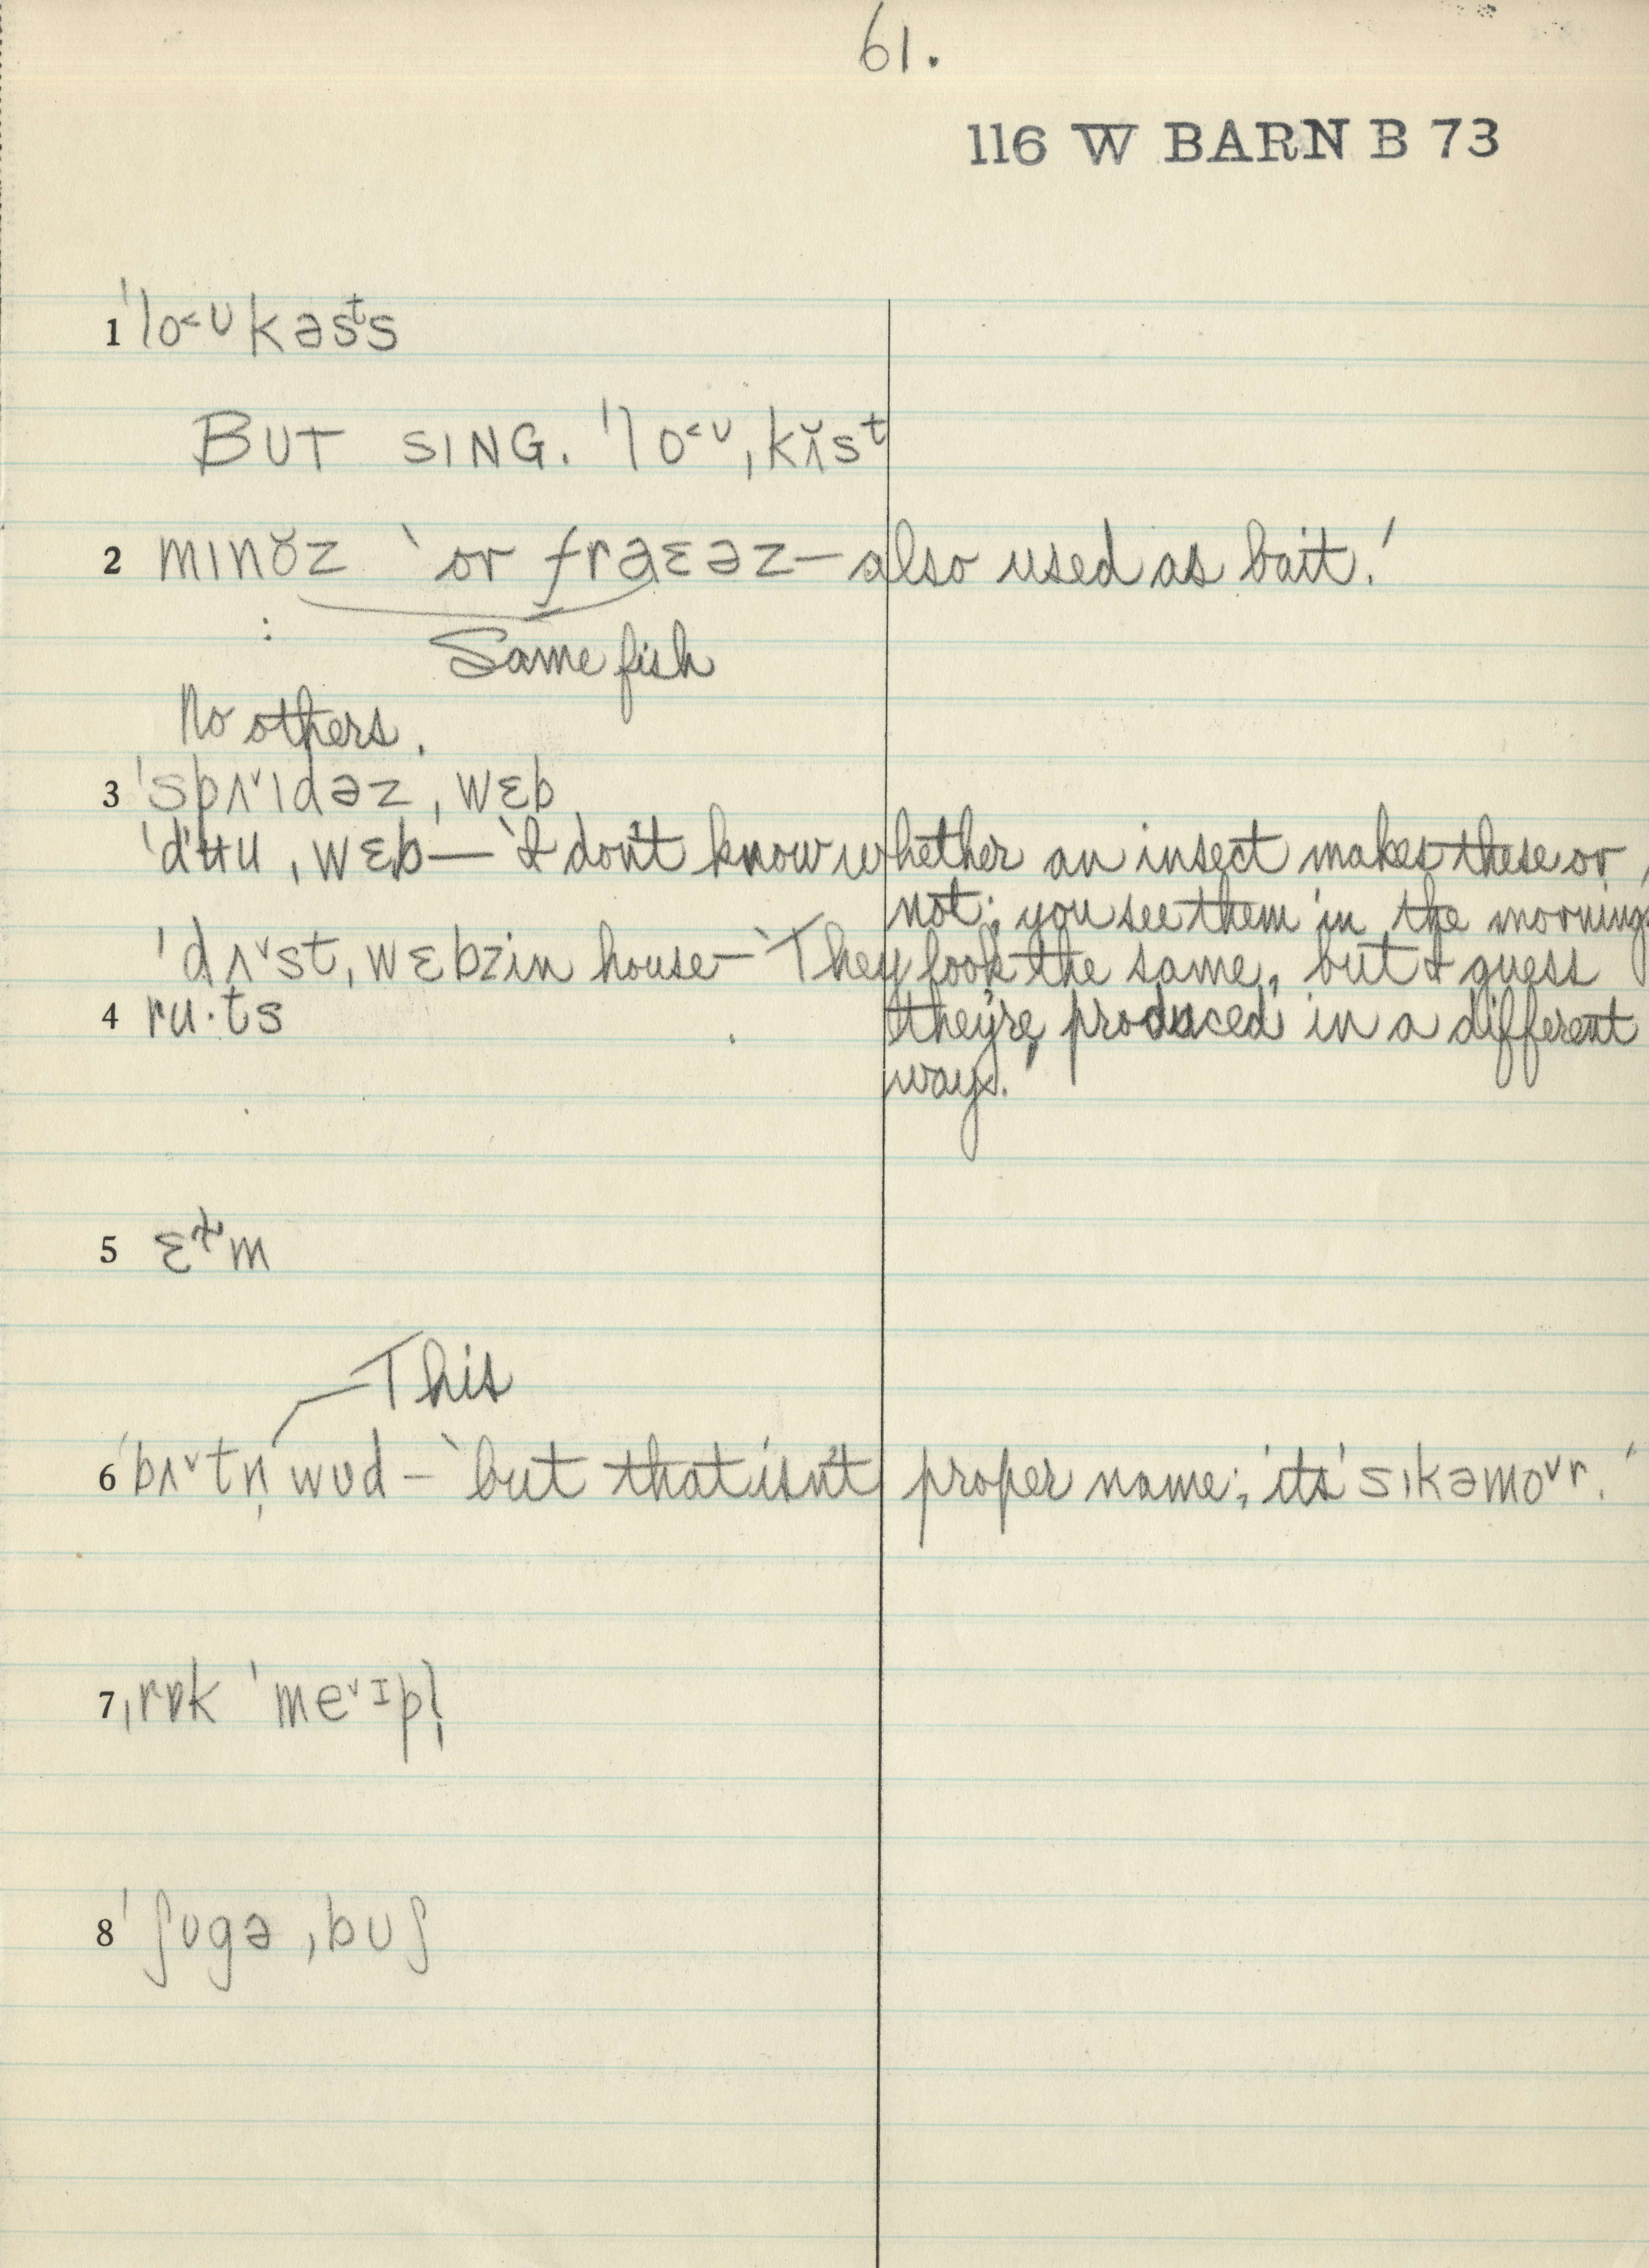 61.
116 W BARN B 73
1 ˈlo˂ʊkəsᵗs
BUT SING. ˈlo˂ᶸˌkʌ̆sᵗ
2 mɪnə̆z ‵or fraɛəz—also used as bait.ʹ
Same fish
No others.
3 ˈspʌ˅ɪdəz ˌwɛb
ˈdʉu ˌwɛb — ‵I don't know whether an insect makes these or
not; you see them in the mornings
ˈdʌ˅st ˌwɛbz in house — ‵They look the same, but I guess
they're produced in a different
ways.ʹ
4 ru·ts
5 ɛᵗm
This
6 ˈbʌ˅tn̩ wʊd — ‵but that isn't proper name; it's ˈsɪkəmo˅r.ʹ
7 ˌrɒk ˈme˅ɪpl̩
8 ˈʃʊgə ˌbʊʃ